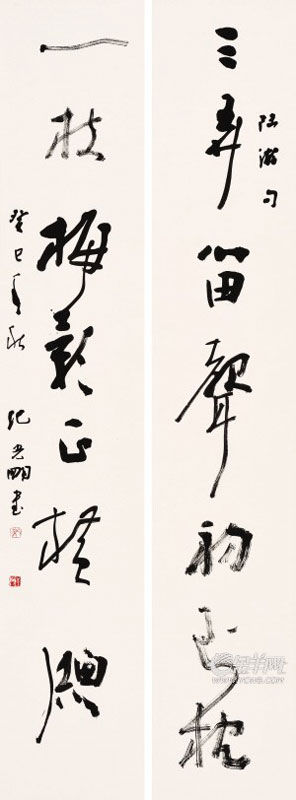 三弄笛聲初到枕
陸游句
一枝梅影正橫牕
癸巳年秋 紀光明書